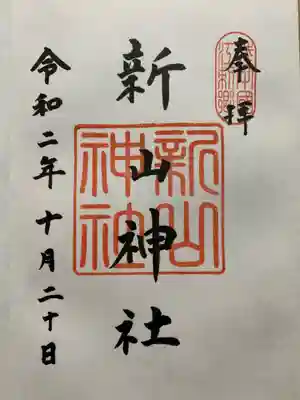 奉拝
新山神社
新山神社
令和二年十月二十日